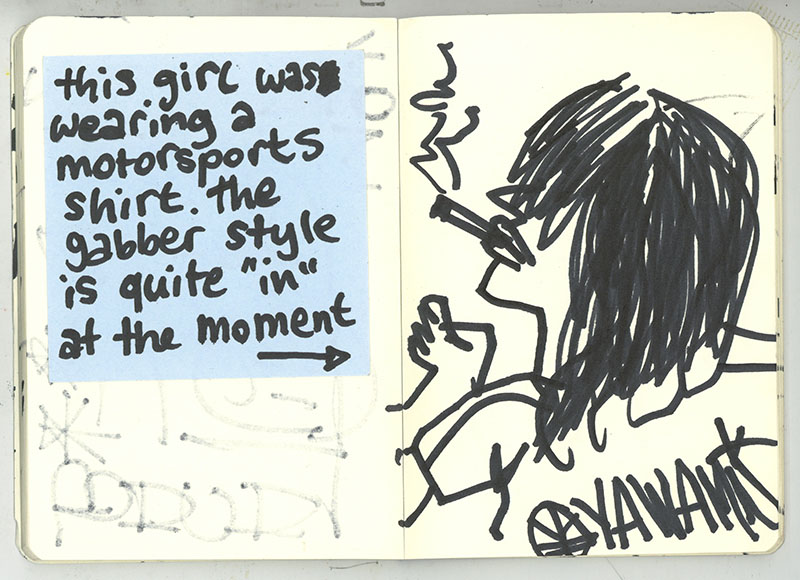 this girl was
wearing a
motorsports
shirt. The
gabber style
is quite "in"
at the moment